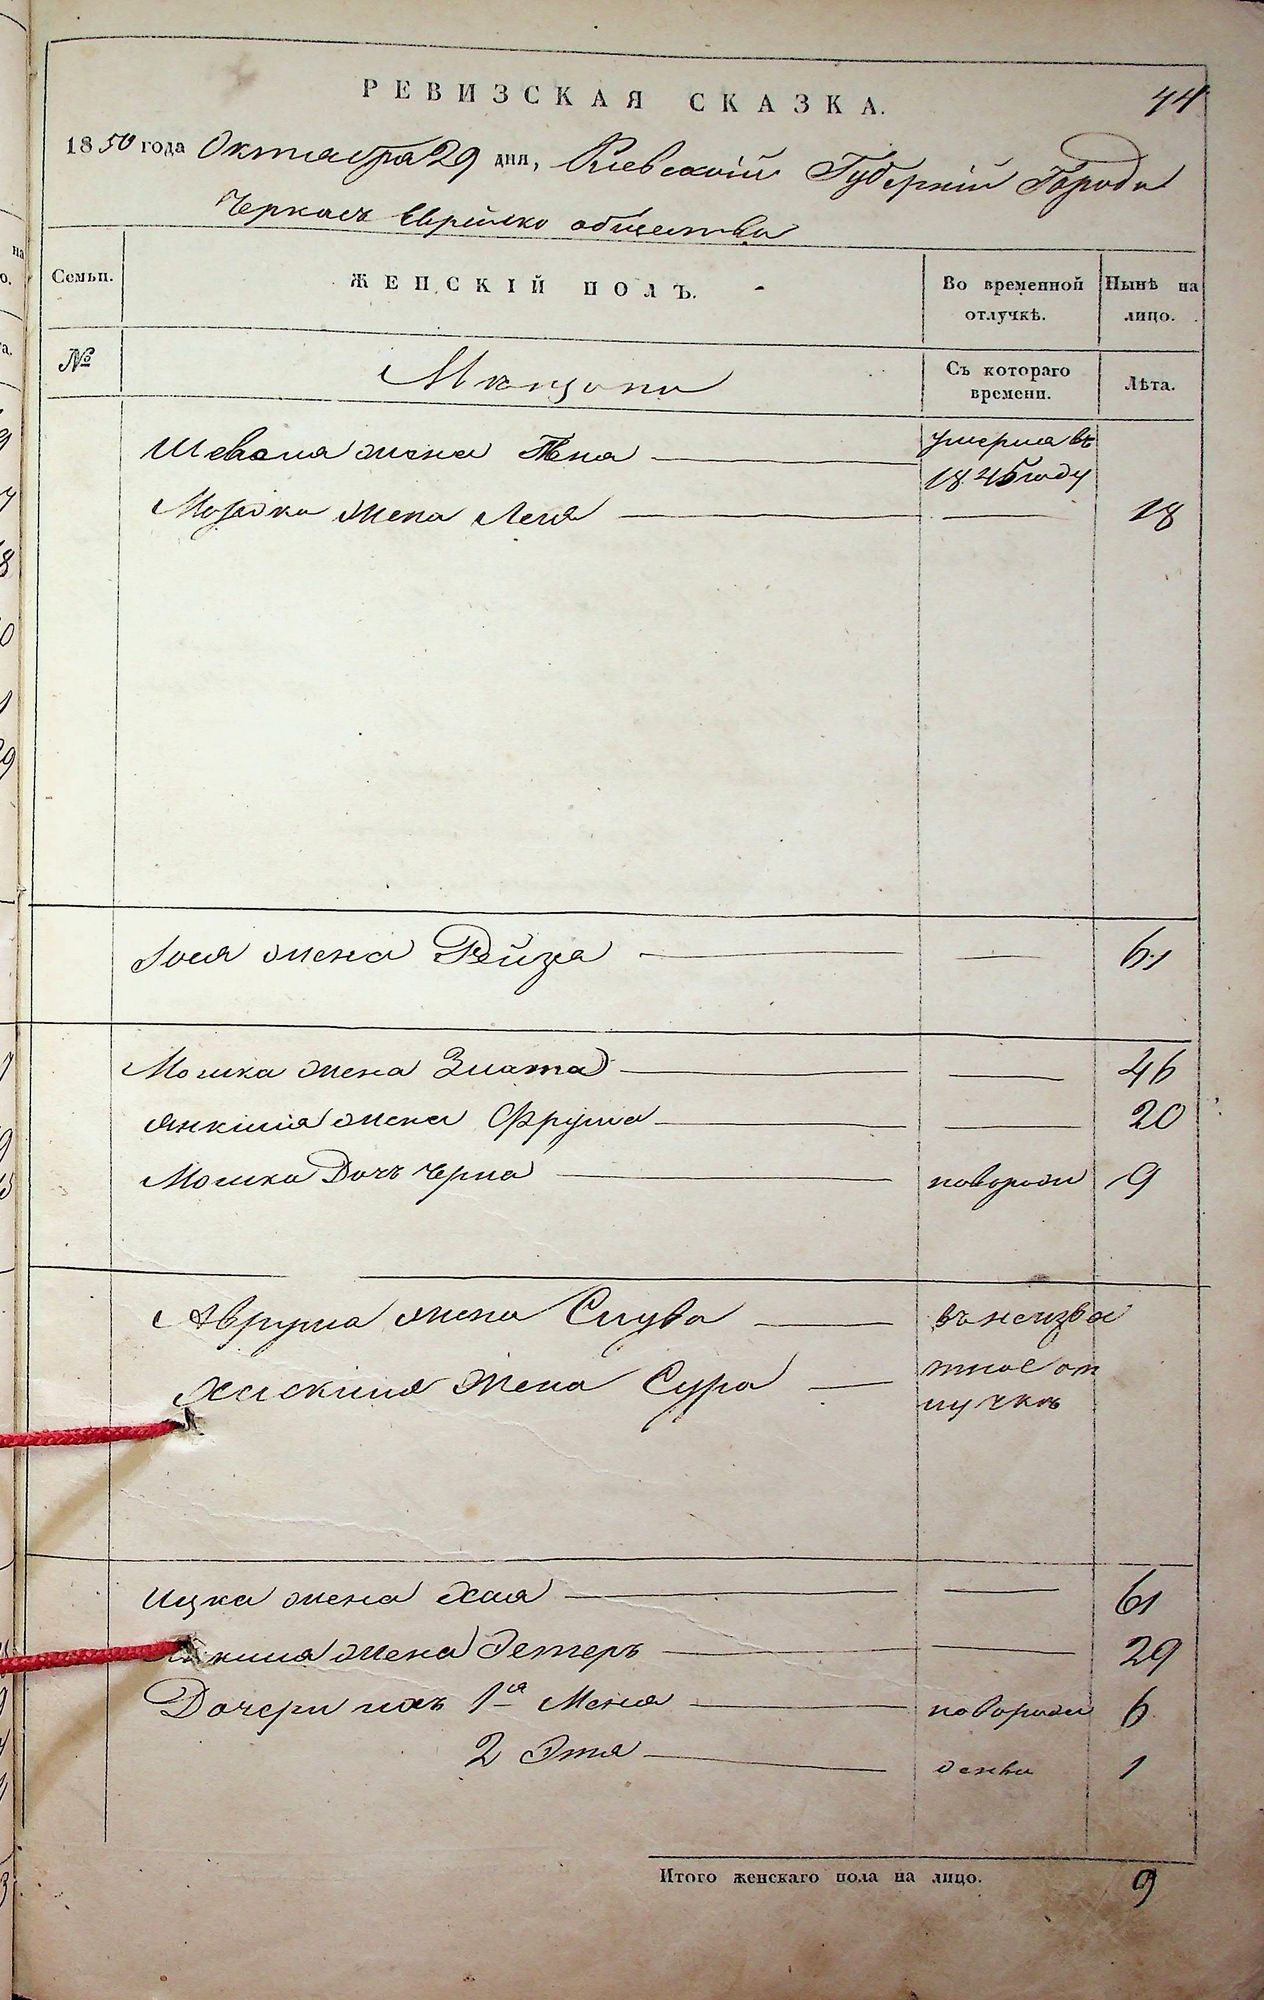 РЕВИЗСКАЯ СКАЗКА. 44
1850 года Октября 29 дня, Киевской Губерніи Города
Черкасъ Еврейско общества
Семьи. ЖЕНСКІЙ ПОЛЪ. Во временной отлучкѣ. Нынѣ на лицо.
№ Мѣщане Съ котораго времени. Лѣта.
жена умерла въ 1845 году
Мордка жена Лея 18
жена Рейза 61
Мошка жена Злата 46
Янкиля жена Фрума 20
Мошка Дочь Черна новорожд 9
Аврума жена Слува въ неизве
Хаскиля жена Сура тное от
лучкѣ
Ицка жена Хая 61
жена Эстеръ 29
Дочери ихъ 1я Меня новорожд 6
2 Этя 1
Итого женскаго пола на лицо. 9